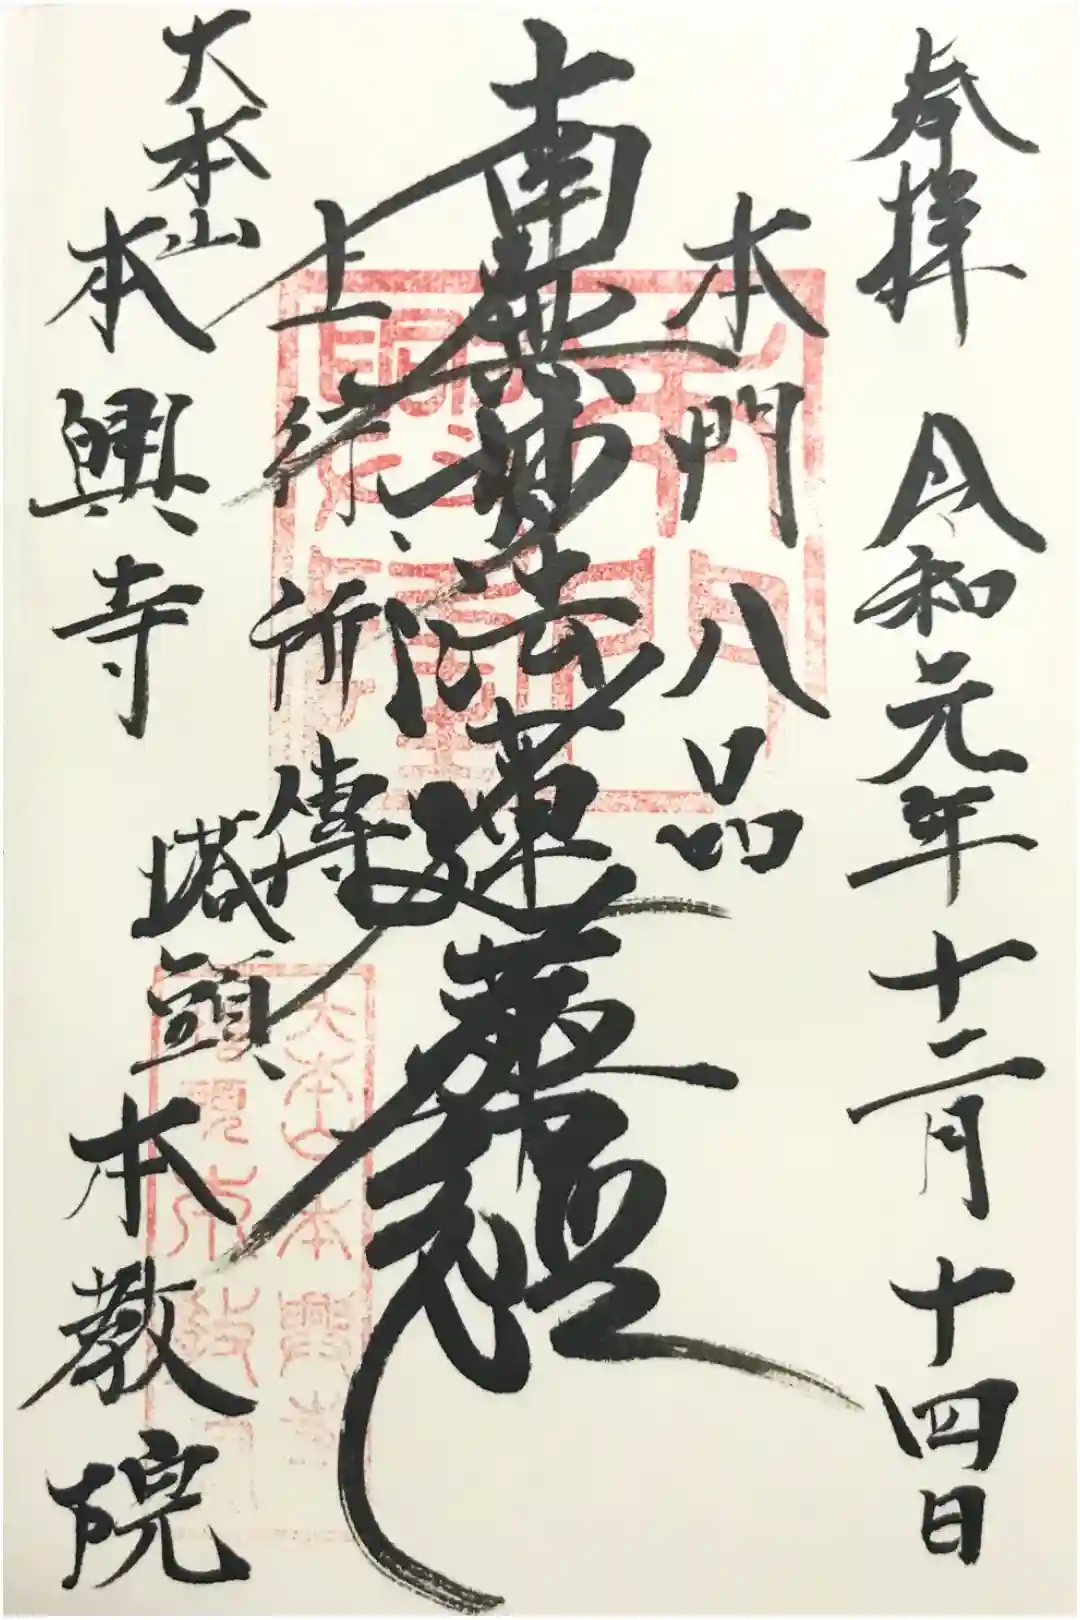 奉拝 令和元年十二月十四日
本門八品
南無妙法蓮華経
上行所傳
大本山
本興寺
塔頭
本教院